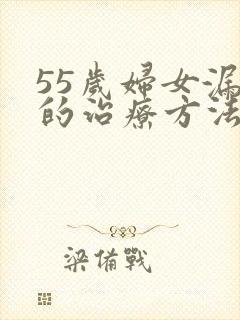 55歲婦女漏
的治療方法
梁備戰